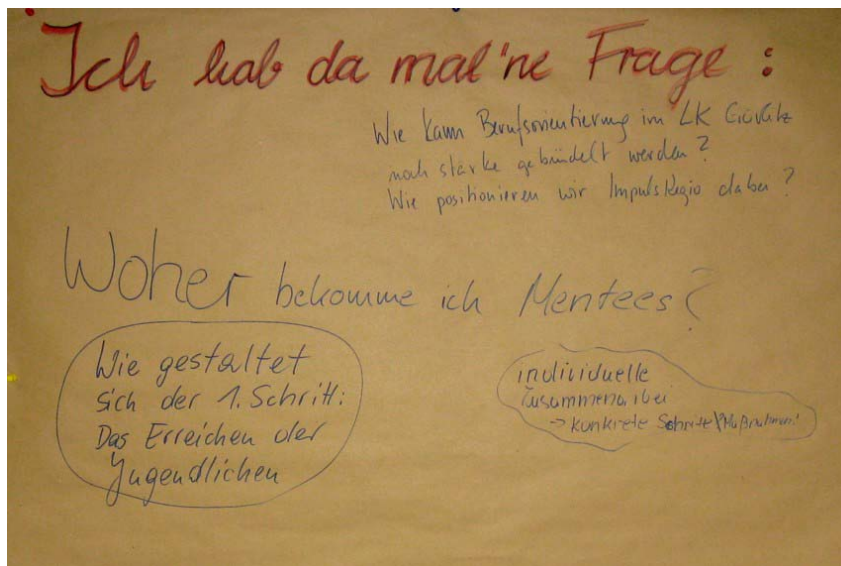 Ich hab da mal 'ne Frage :
Wie kann Berufsorientierung im LK Görlitz
noch stärke gebündelt werden?
Wie positionieren wir ImpulsRegio dabei?
Woher bekomme ich Mentees?
Wie gestaltet
sich der 1. Schritt:
Das Erreichen der
Jugendlichen
individuelle
Zusammenarbei
-> konkrete Schritte\Maßnahmen?